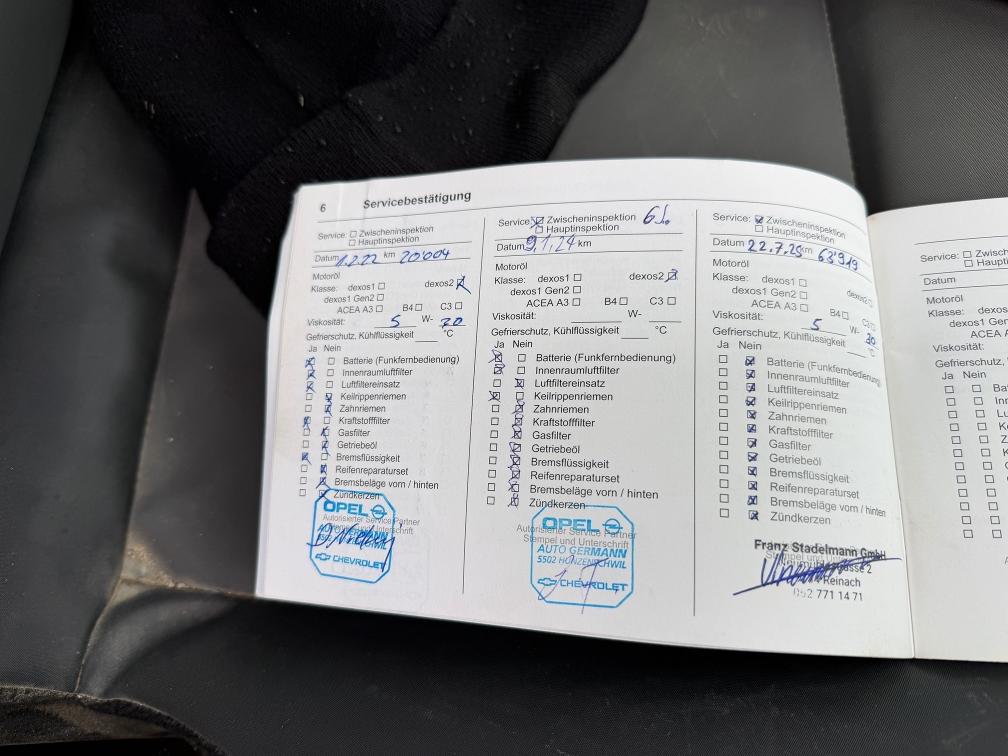 6 Servicebestätigung
Service: ☐ Zwischeninspektion
☐ Hauptinspektion
Datum 1.2.22 km 20'004
Motoröl
Klasse: dexos1 ☐ dexos2 ☒
dexos1 Gen2 ☐
ACEA A3 ☐ B4 ☐ C3 ☐
Viskosität: 5 W-
Gefrierschutz, Kühlflüssigkeit °C
Ja Nein
☒ ☐ Batterie (Funkfernbedienung)
☒ ☐ Innenraumluftfilter
☒ ☐ Luftfiltereinsatz
☐ ☒ Keilrippenriemen
☐ ☒ Zahnriemen
☒ ☐ Kraftstofffilter
☐ ☒ Gasfilter
☐ ☒ Getriebeöl
☒ ☐ Bremsflüssigkeit
☐ ☒ Reifenreparaturset
☐ ☒ Bremsbeläge vorn / hinten
☐ ☒ Zündkerzen
OPEL
Autorisierter Service Partner
Stempel und Unterschrift
AUTO GERMANN
5502 HUNZENSCHWIL
CHEVROLET
Service: ☒ Zwischeninspektion
☐ Hauptinspektion
Datum 9.1.24 km
Motoröl
Klasse: dexos1 ☐ dexos2 ☒
dexos1 Gen2 ☐
ACEA A3 ☐ B4 ☐ C3 ☐
Viskosität: W-
Gefrierschutz, Kühlflüssigkeit °C
Ja Nein
☒ ☐ Batterie (Funkfernbedienung)
☒ ☐ Innenraumluftfilter
☐ ☒ Luftfiltereinsatz
☒ ☐ Keilrippenriemen
☐ ☒ Zahnriemen
☐ ☒ Kraftstofffilter
☐ ☒ Gasfilter
☐ ☒ Getriebeöl
☐ ☒ Bremsflüssigkeit
☐ ☒ Reifenreparaturset
☐ ☒ Bremsbeläge vorn / hinten
☐ ☒ Zündkerzen
OPEL
Autorisierter Service Partner
Stempel und Unterschrift
AUTO GERMANN
5502 HUNZENSCHWIL
CHEVROLET
Service: ☒ Zwischeninspektion
☐ Hauptinspektion
Datum 22.7.25 km 63'919
Motoröl
Klasse: dexos1 ☐ dexos2 ☐
dexos1 Gen2 ☐
ACEA A3 ☐ B4 ☐ C3 ☐
Viskosität: 5 W- 30
Gefrierschutz, Kühlflüssigkeit °C
Ja Nein
☐ ☒ Batterie (Funkfernbedienung)
☐ ☒ Innenraumluftfilter
☐ ☒ Luftfiltereinsatz
☐ ☒ Keilrippenriemen
☐ ☒ Zahnriemen
☐ ☒ Kraftstofffilter
☐ ☒ Gasfilter
☐ ☒ Getriebeöl
☐ ☒ Bremsflüssigkeit
☐ ☒ Reifenreparaturset
☐ ☒ Bremsbeläge vorn / hinten
☐ ☒ Zündkerzen
Franz Stadelmann GmbH
Stempel und
Reinach
062 771 14 71
Service: ☐ Zwisch
☐ Haupti
Datum
Motoröl
Klasse: dexos
dexos1 Gen
ACEA A
Viskosität:
Gefrierschutz, K
Ja Nein